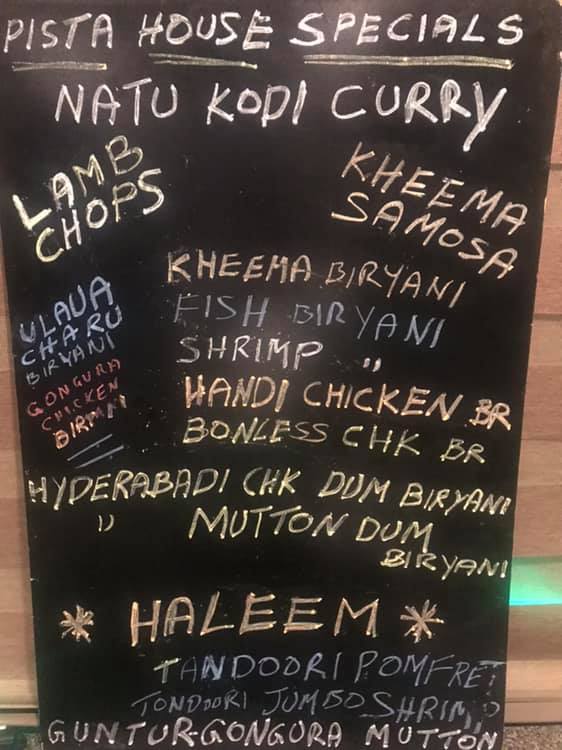 PISTA HOUSE SPECIALS
NATU KODI CURRY
LAMB
CHOPS
KHEEMA
SAMOSA
ULAVA
CHARU
BIRYANI
GONGURA
CHICKEN
KHEEMA BIRYANI
FISH BIRYANI
SHRIMP "
HANDI CHICKEN BR
BONLESS CHK BR
HYDERABADI CHK DUM BIRYANI
" MUTTON DUM
BIRYANI
* HALEEM *
TANDOORI POMFRET
TONDOORI JUMBO SHRIMP
GUNTUR-GONGURA MUTTON